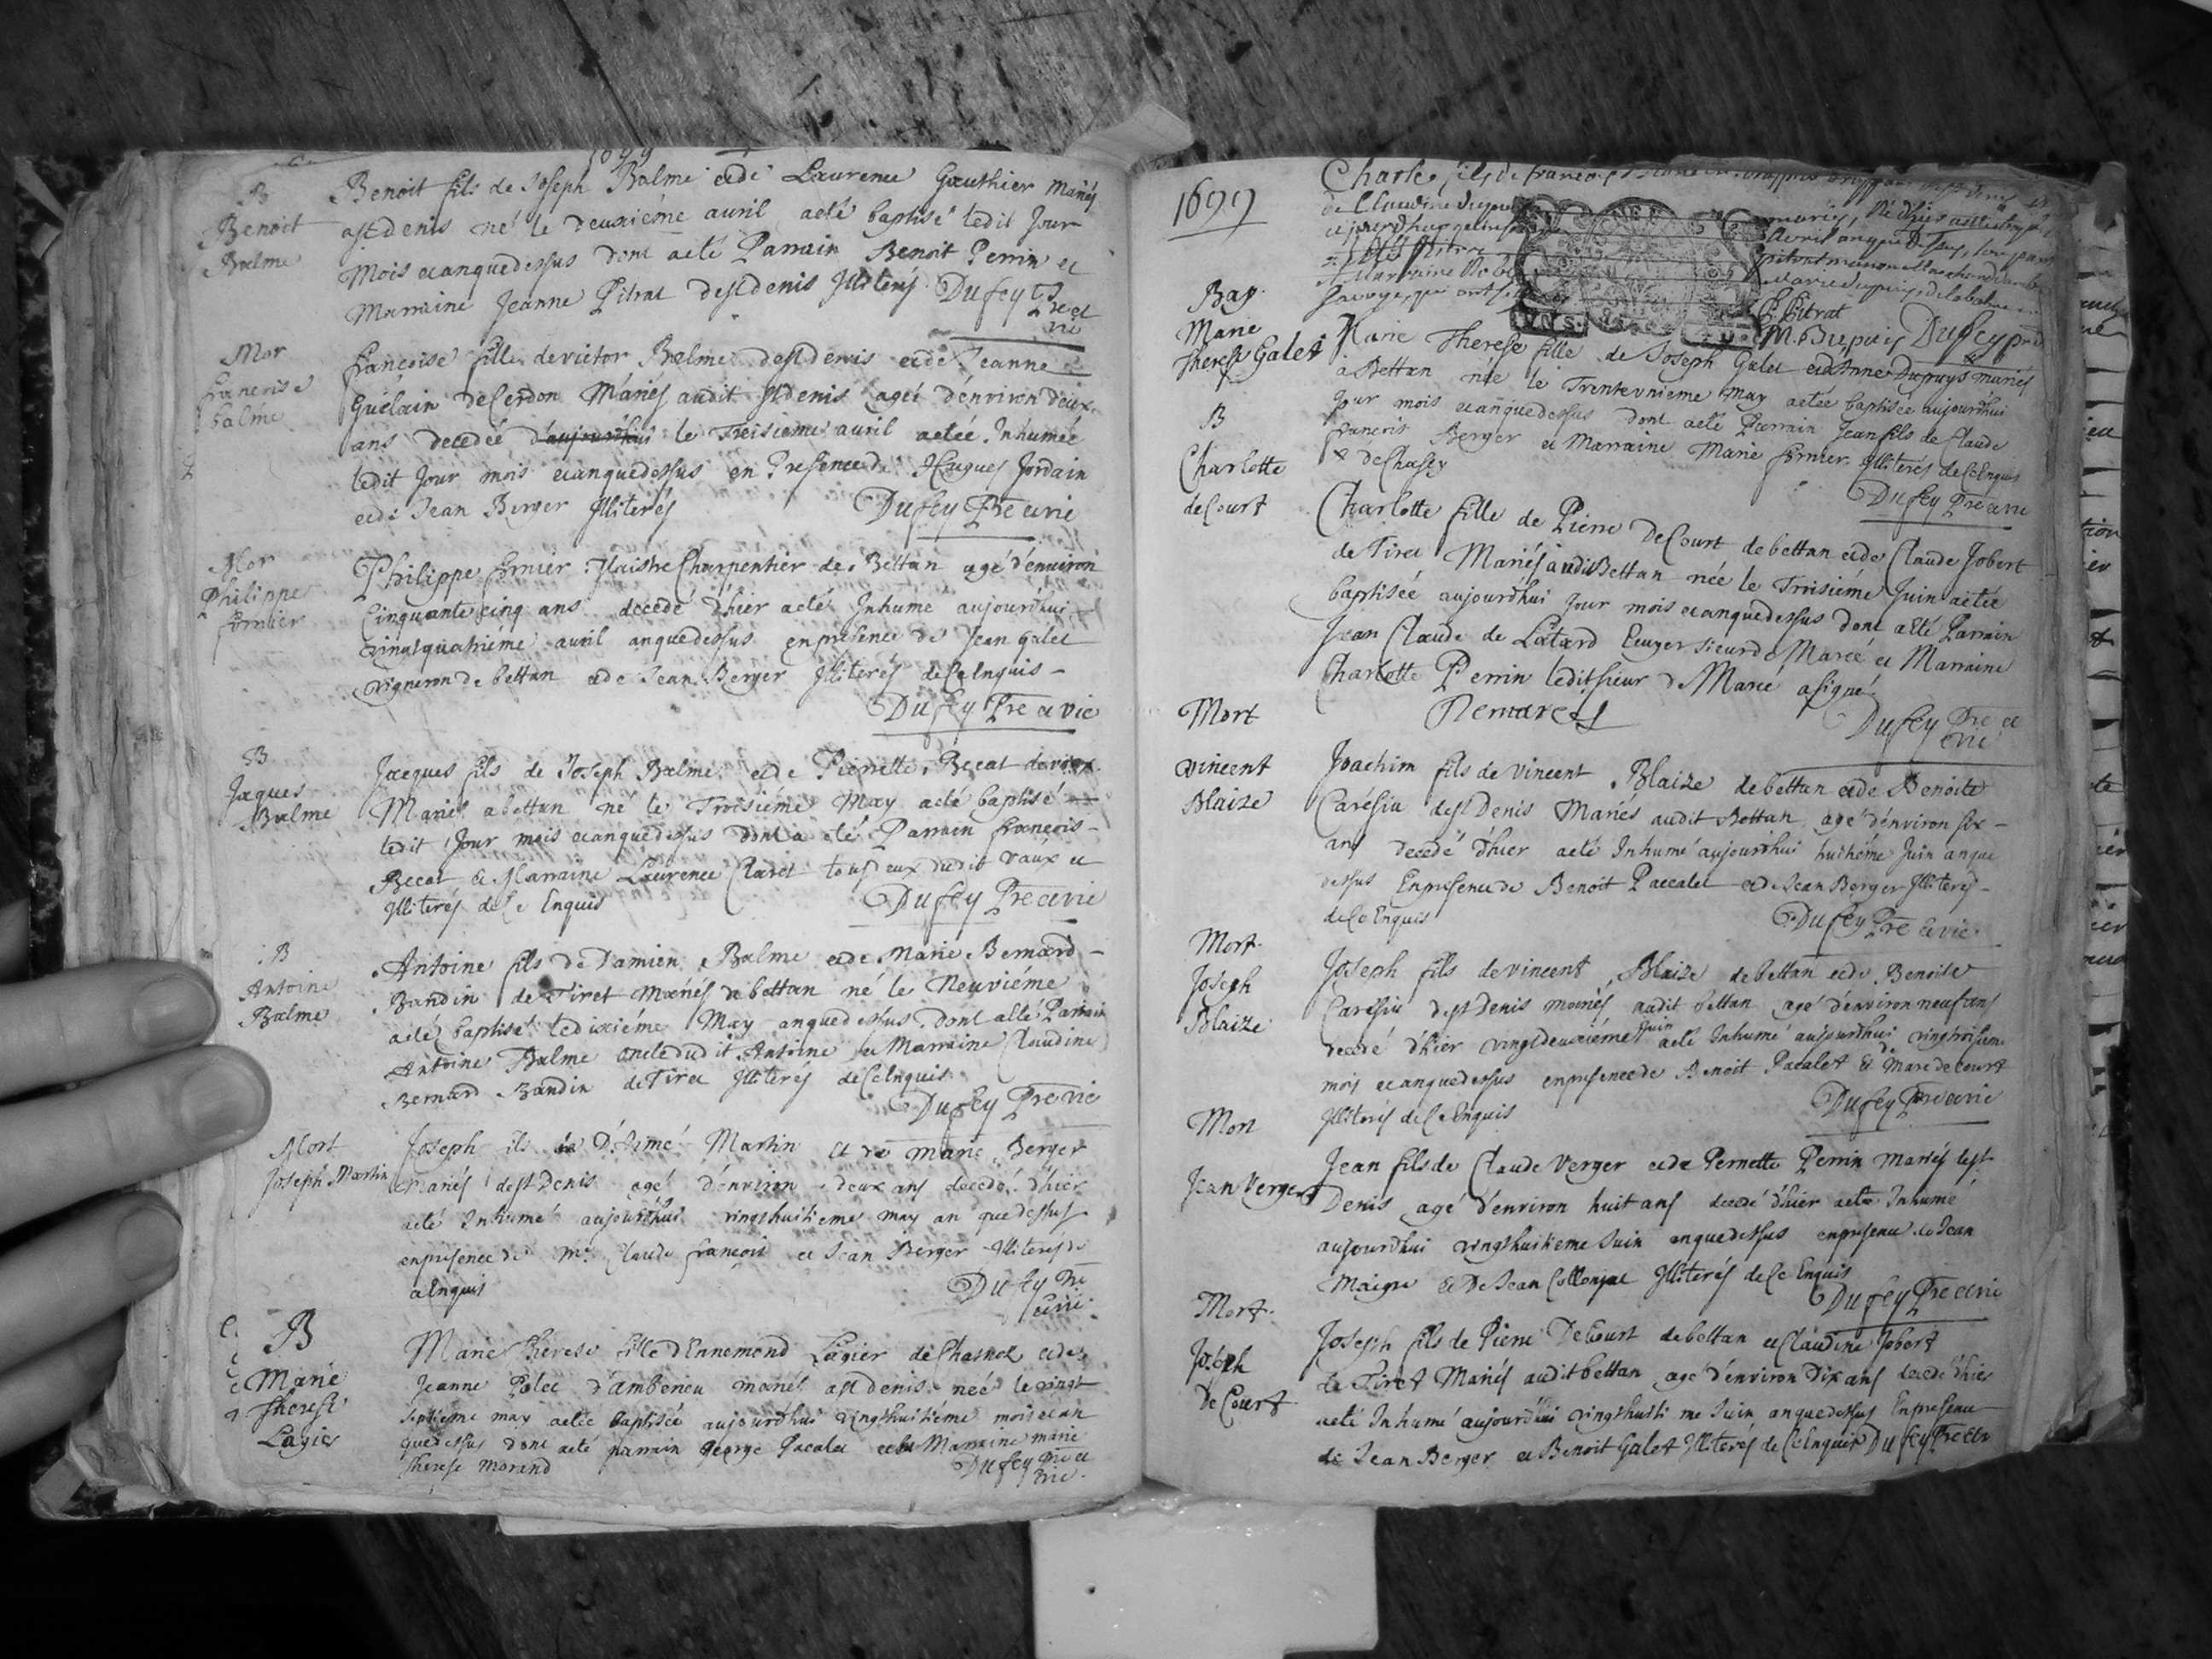 1699
B
Benoit
Balme
Benoit fils de Joseph Balme et de Laurence Gauthier Mariés
a st Denis né le deuxiéme avril a eté baptisé ledit Jour
Mois et an que dessus dont a eté Parrain Benoit Perrin et
Marraine Jeanne Pitrat de st denis Illiterés Dufey Pre et
vic
Mor
francoise
balme
francoise fille de victor Balme de st denis et de Jeanne
Guélain de Cerdon Mariés audit st denis ageé d'environ deux
ans decedée d'aujourdhui le Treisieme avril a etée Inhumée
ledit Jour mois et an que dessus en Presence de Hugues Jordain
et de Jean Berger Illiterés Dufey Pre et vic
Mor
Philippe
fornier
Philippe fornier Maistre Charpentier de Bettan agé d'environ
Cinquante cinq ans decedé d'hier a eté Inhumé aujourdhui
vingtquatriéme avril an que dessus en presence de Jean galet
vigneron de bettan et de Jean Berger Illiterés de Ce Enquis
Dufey Pre et vic
B
Jacques
Balme
Jacques fils de Joseph Balme et de Pierrette Beccat de vaux
Mariés a bettan né le Troisiéme May a eté baptisé
ledit Jour mois et an que dessus dont a eté Parrain francois
Beccat et Marraine Laurence Claret tous deux dudit vaux et
Illiterés de Ce Enquis Dufey Pre et vic
B
Antoine
Balme
Antoine fils de Damien Balme et de Marie Bernard
Bandin de Tiret Mariés de bettan né le Neuviéme
a eté baptisé le dixiéme May an que dessus dont a eté Parrain
Antoine Balme oncle dudit Antoine et Marraine Claudine
Bernard Bandin de Tiret Illiterés de Ce Enquis
Dufey Pre vic
Mort
Joseph Martin
Joseph fils de D'Aimé Martin et de marie Berger
mariés de st Denis agé d'environ deux ans decedé d'hier
a eté Inhumé aujourdhui vingthuitieme may an que dessus
en presence de Mr Claude francois et Jean Berger Illiterés de
ce Enquis Dufey Pre
et vic
B
Marie
therese
Lagier
Marie therese fille d'Ennemond Lagier de Chasnoz et de
Jeanne Polec d'ambericu mariés a st denis neé le vingt
septieme may a etée baptisée aujourdhui vingthuitiéme mois et an
que dessus dont a eté parrain george Pacalet et la Marraine marie
therese morand Dufey Pre et
vic
1699
Charles fils de francois
de Claudine
mariés, Né d'hier
Avril an que dessus
P Pitrat
M. Dupuis Dufey pre
Bap.
Marie
therese Galet
Marie Therese fille de Joseph Galet et d'Anne Dupuys mariés
à Bettan née le Trente unieme May a etée baptisée aujourdhui
Jour mois et an que dessus dont a eté Parrain Jean fils de Claude
francois Berger et Marraine Marie fornier Illiterés de Ce Enquis
Dufey Pre et vic
B
Charlotte
de Court
Charlotte fille de Pierre De Court de bettan et de Claude Jobert
de Tiret Mariés audit Bettan née le Troisiéme Juin a etée
baptisée aujourdhui Jour mois et an que dessus dont a eté Parrain
Jean Claude de Latard Ecuyer sieur de Marcé et Marraine
Charlotte Perrin ledit sieur de Marcé a signé
Dufey Pre et
vic
Mort
vincent
Blaize
Joachim fils de vincent Blaize de bettan et de Benoite
Carésiu de st Denis Mariés audit Bettan agé d'environ six
ans decedé d'hier a eté Inhumé aujourdhui huitiéme Juin an que
dessus En presence de Benoit Paccalet et de Jean Berger Illiterés
de Ce Enquis Dufey Pre et vic
Mort
Joseph
Blaize
Joseph fils de vincent Blaize de bettan et de Benoite
Carésiu de st Denis mariés audit bettan agé d'environ neuf ans
decedé d'hier vingtdeuxiéme Juin a eté Inhumé aujourdhui vingttroisieme
mois et an que dessus en presence de Benoit Pacalet et de Marc de court
Illiterés de Ce Enquis Dufey Pre et vic
Mort
Jean Verger
Jean fils de Claude Verger et de Pernette Perrin Mariés de st
Denis agé d'environ huit ans decedé d'hier a eté Inhumé
aujourdhui vingthuitieme Juin an que dessus en presence de Jean
Maigre et De Jean Collonjat Illiterés de Ce Enquis
Dufey Pre et vic
Mort
Joseph
De Court
Joseph fils de Pierre De Court de bettan et Claudine Jobert
de Tiret Mariés audit bettan agé d'environ Dix ans decedé d'hier
a eté Inhumé aujourdhui vingthuitieme Juin an que dessus En presence
de Jean Berger et Benoit Galet Illiterés de Ce Enquis Dufey Pre et vic